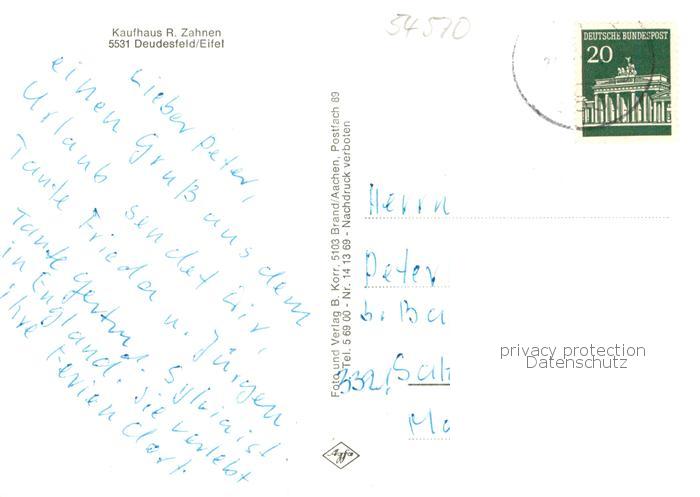 Kaufhaus R. Zahnen
5531 Deudesfeld/Eifel
54570
DEUTSCHE BUNDESPOST
20
Lieber Peter,
einen Gruß aus dem
Urlaub sendet wir,
Tante Frieda u. Jürgen
Tante Gertrud. Sylvia ist
in England. Sie verlebt
ihre Ferien dort.
Foto und Verlag B. Korr, 5103 Brand/Aachen, Postfach 89
Tel. 5 69 00 - Nr. 14 13 69 - Nachdruck verboten
Herrn
Peter
b. Ba
332, Sal
Agfa
privacy protection
Datenschutz